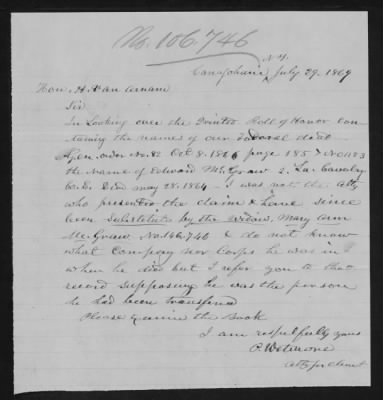 No. 106.746
N.Y.
Canajoharie, July 29, 1869
Hon. H. Van Arnam
Sir
In Looking over the Printed Roll of Honor con
taining the names of our Federal dead
Gen. order No. 82 Oct 8. 1866 page 185 No 1183
the Name of Edward McGraw 2. La. Cavalry
Co. D. Died May 28. 1864 - I was not the Atty
who presented the claim & have since
been Substitut by the widow, Mary Ann
McGraw No. 146.746 & do not know
what Company nor Corps he was in
when he died but I refer you to that
record supposing he was the person
he had been transferd
Please examine the Book
I am respectfully yours
P. Wetmore
atty for claimt